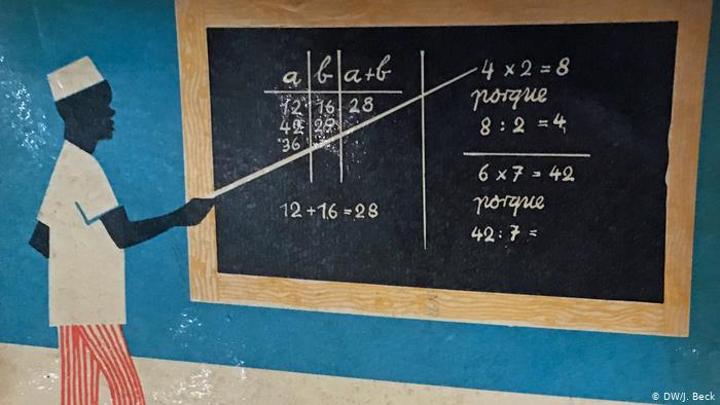 a b a+b
12 16 28
42
36
12 + 16 = 28
4 × 2 = 8
porque
8 : 2 = 4
6 × 7 = 42
porque
42 : 7 =
© DW/J. Beck